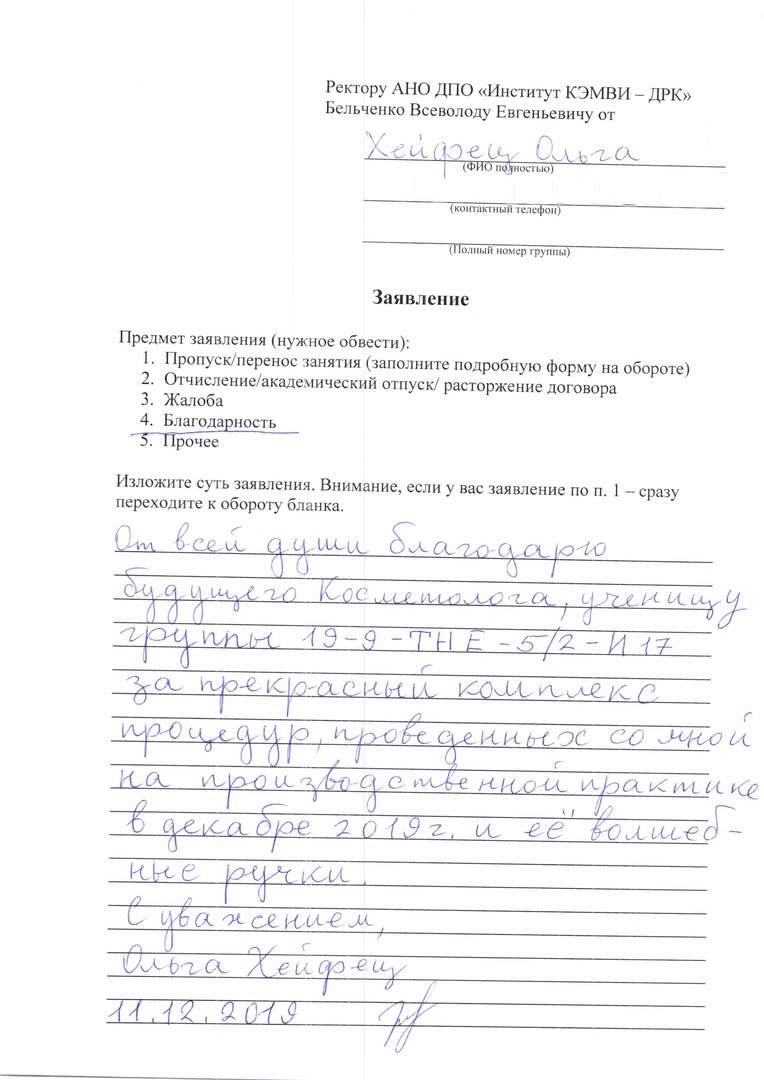 Ректору АНО ДПО «Институт КЭМВИ – ДРК»
Бельченко Всеволоду Евгеньевичу от
Хейфец Ольга
(ФИО полностью)
(контактный телефон)
(Полный номер группы)
Заявление
Предмет заявления (нужное обвести):
1. Пропуск/перенос занятия (заполните подробную форму на обороте)
2. Отчисление/академический отпуск/ расторжение договора
3. Жалоба
4. Благодарность
5. Прочее
Изложите суть заявления. Внимание, если у вас заявление по п. 1 – сразу
переходите к обороту бланка.
От всей души благодарю
будущего Косметолога, ученицу
группы 19-9-ТНЕ-5/2-И17
за прекрасный комплекс
процедур, проведенных со мной
на производственной практике
в декабре 2019г. и её волшеб-
ные ручки.
С уважением,
Ольга Хейфец
11.12.2019